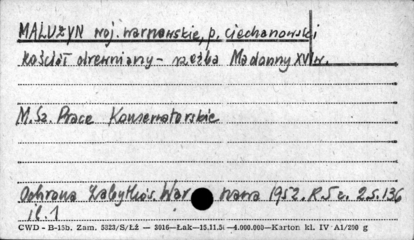 MALUŻYN woj. warszawskie, p. ciechanowski
kościół drewniany - rzeźba Madonny XVI w.
M. Sz. Prace Konserwatorskie
Ochrona Zabytków. Warszawa 1952. R. 5 z. 2 s. 136
il. 1
CWD - B-15b. Zam. 5323/S/ŁŻ — 2016—Łak—15.11.5 —4.000.000—Karton kl. IV A1/200 g